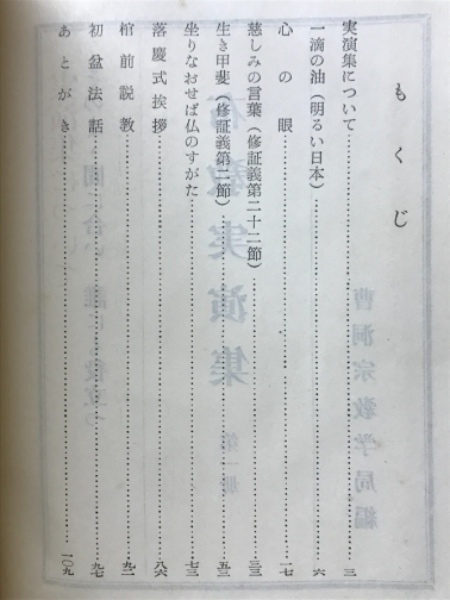 もくじ
実演集について……三
一滴の油（明るい日本）……六
心の眼……一七
慈しみの言葉（修証義第二十二節）……三三
生き甲斐（修証義第二節）……五三
坐りなおせば仏のすがた……七三
落慶式挨拶……八六
棺前説教……九二
初盆法話……九七
あとがき……一〇九
曹洞宗教学局編
布教実演集
第一册